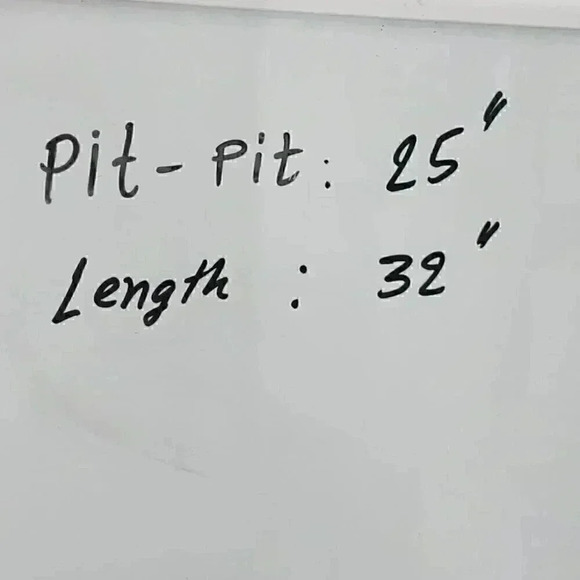 Pit - Pit : 25"
Length : 32"